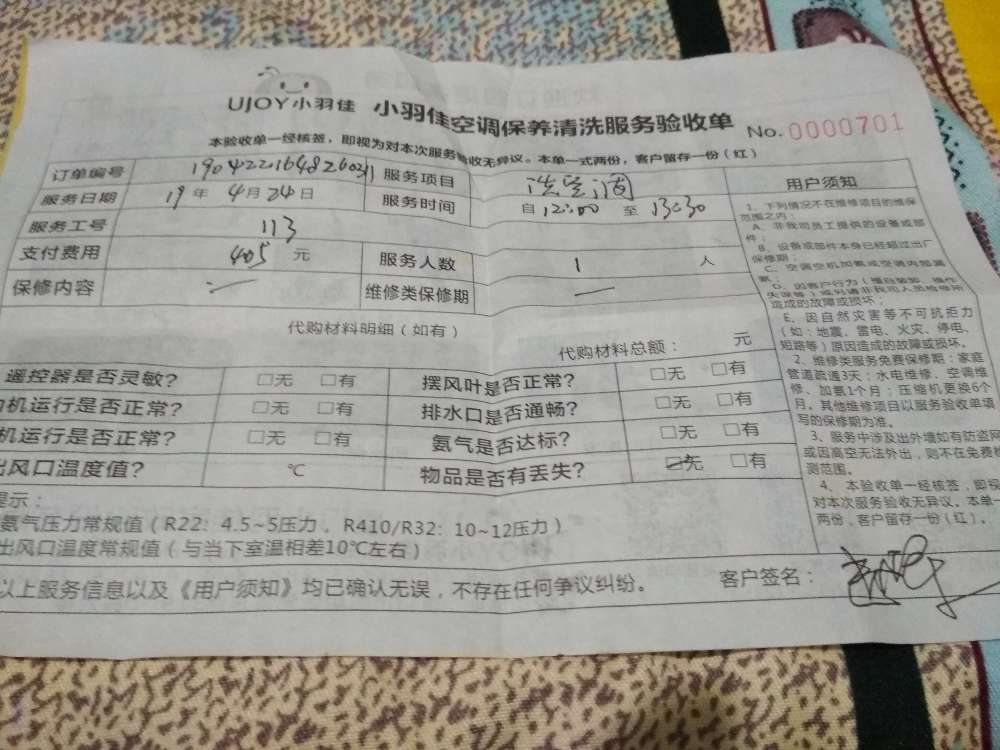 UJOY小羽佳 小羽佳空调保养清洗服务验收单 No.0000701
本验收单一经核签，即视为对本次服务验收无异议。本单一式两份，客户留存一份（红）
订单编号 服务项目 洗空调
服务日期 19年4月24日 服务时间 自12:00至13:30
服务工号 113
支付费用 405元 服务人数 1人
保修内容 — 维修类保修期 —
代购材料明细（如有）
代购材料总额： 元
遥控器是否灵敏？ □无 □有 摆风叶是否正常？ □无 □有
机运行是否正常？ □无 □有 排水口是否通畅？ □无 □有
机运行是否正常？ □无 □有 氨气是否达标？ □无 □有
出风口温度值？ ℃ 物品是否有丢失？ ☑无 □有
提示：
氨气压力常规值（R22：4.5~5压力。R410/R32：10~12压力）
出风口温度常规值（与当下室温相差10℃左右）
以上服务信息以及《用户须知》均已确认无误，不存在任何争议纠纷。 客户签名：
用户须知
1、下列情况不在维修项目的维保
范围之内：
A、非我司员工提供的设备或部
件；
B、设备或部件本身已经超过出厂
保修期；
C、空调空机加氨或空调内部漏
氨；
造成的故障或损坏；
E、因自然灾害等不可抗拒力
（如：地震、雷电、火灾、停电、
短路等）原因造成的故障或损坏。
2、维修类服务免费保修期：家庭
管道疏通3天；水电维修、空调维
修、加氨1个月；压缩机更换6个
月。其他维修项目以服务验收单填
写的保修期为准。
3、服务中涉及出外墙如有防盗网
或因高空无法外出，则不在免费检
测范围。
4、本验收单一经核签，即视
对本次服务验收无异议。本单一
两份，客户留存一份（红）。